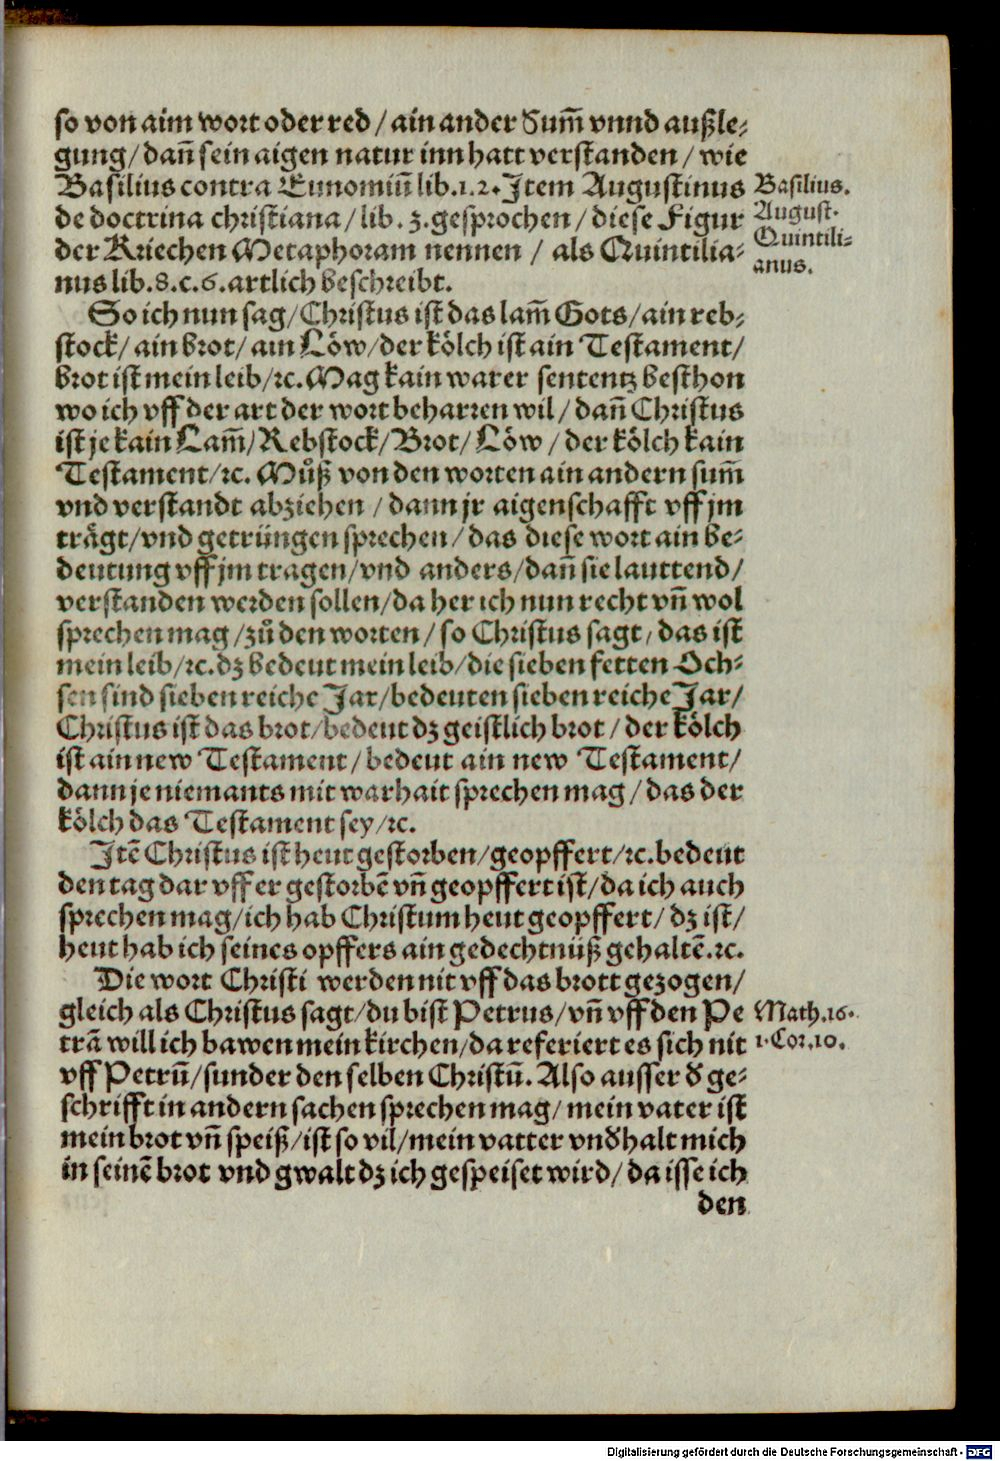 so von aim wort oder red / ain ander Sum̃ vnnd außle⸗
gung / dañ sein aigen natur inn hatt verstanden / wie
Basilius contra Eunomiũ lib.1.2. Item Augustinus
de doctrina christiana / lib. 3. gesprochen / diese Figur
der Kriechen Metaphoram nennen / als Quintilia⸗
nus lib.8.c.6. artlich beschreibt.
Basilius.
August.
Quintili⸗
anus.
So ich nun sag / Christus ist das lam̃ Gots / ain reb⸗
stock / ain brot / ain Löw / der kölch ist ain Testament /
brot ist mein leib / ꝛc. Mag kain warer sententz besthon
wo ich vff der art der wort beharren wil / dañ Christus
ist je kain Lam̃ / Rebstock / Brot / Löw / der kölch kain
Testament / ꝛc. Můß von den worten ain andern sum̃
vnd verstandt abziehen / dann jr aigenschafft vff jm
trägt / vnd getrüngen sprechen / das diese wort ain be⸗
deutung vff jm tragen / vnd anders / dañ sie lauttend /
verstanden werden sollen / da her ich nun recht vñ wol
sprechen mag / zů den worten / so Christus sagt / das ist
mein leib / ꝛc. dz bedeut mein leib / die sieben fetten Och⸗
sen sind sieben reiche Jar / bedeuten sieben reiche Jar /
Christus ist das brot / bedeut dz geistlich brot / der kölch
ist ain new Testament / bedeut ain new Testament /
dann je niemants mit warhait sprechen mag / das der
kölch das Testament sey / ꝛc.
Itẽ Christus ist heut gestorben / geopffert / ꝛc. bedeut
den tag dar vff er gestorbẽ vñ geopffert ist / da ich auch
sprechen mag / ich hab Christum heut geopffert / dz ist /
heut hab ich seines opffers ain gedechtnüß gehaltẽ. ꝛc.
Die wort Christi werden nit vff das brott gezogen /
gleich als Christus sagt / du bist Petrus / vñ vff den Pe
trã will ich bawen mein kirchen / da referiert es sich nit
vff Petrũ / sunder den selben Christũ. Also ausser d̕ ge⸗
schrifft in andern sachen sprechen mag / mein vater ist
mein brot vñ speiß / ist so vil / mein vatter vnd̕halt mich
in seinẽ brot vnd gwalt dz ich gespeiset wird / da isse ich
den
Math.16.
1.Cor.10.
Digitalisierung gefördert durch die Deutsche Forschungsgemeinschaft - DFG